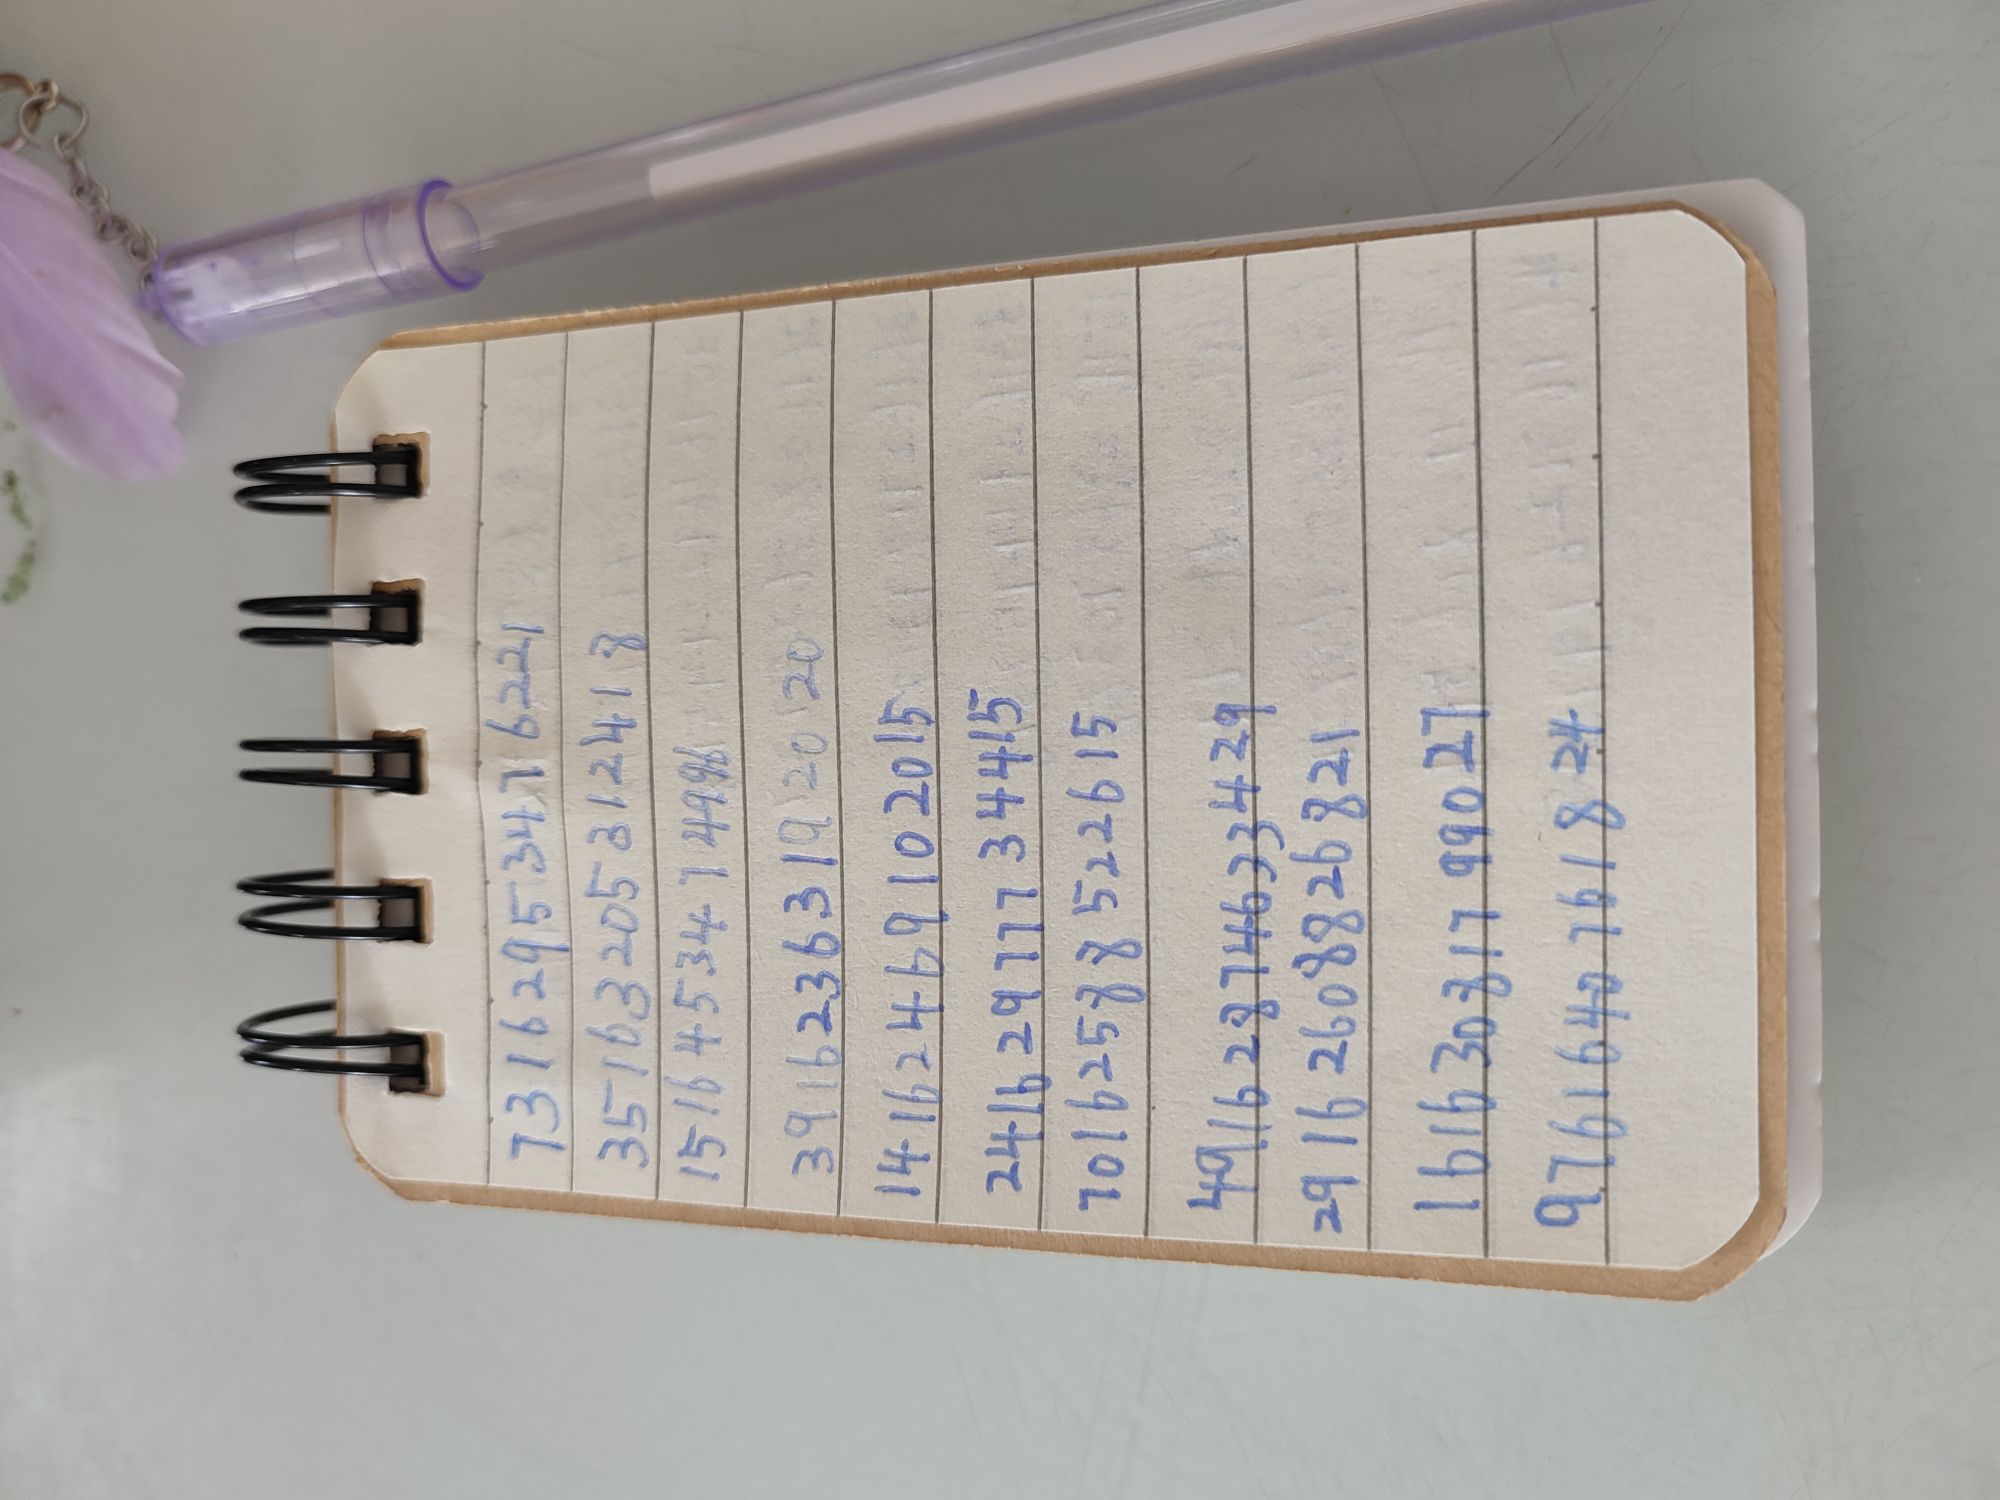 731629534716221
3516320531241 8
1516453471499%
391623631920 20 20
14162469102015
24162977734415
7016258852261 5
491628746334 29
29162608826821
161630817 99027
976164076 1824